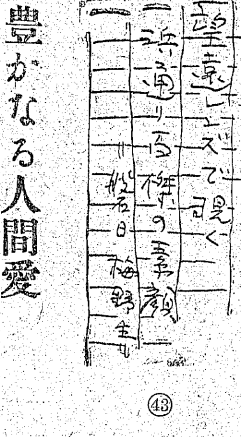 望遠レンズで覗く
浜通り馬橇の素顔
般若日梅野生
豊かなる人間愛
43